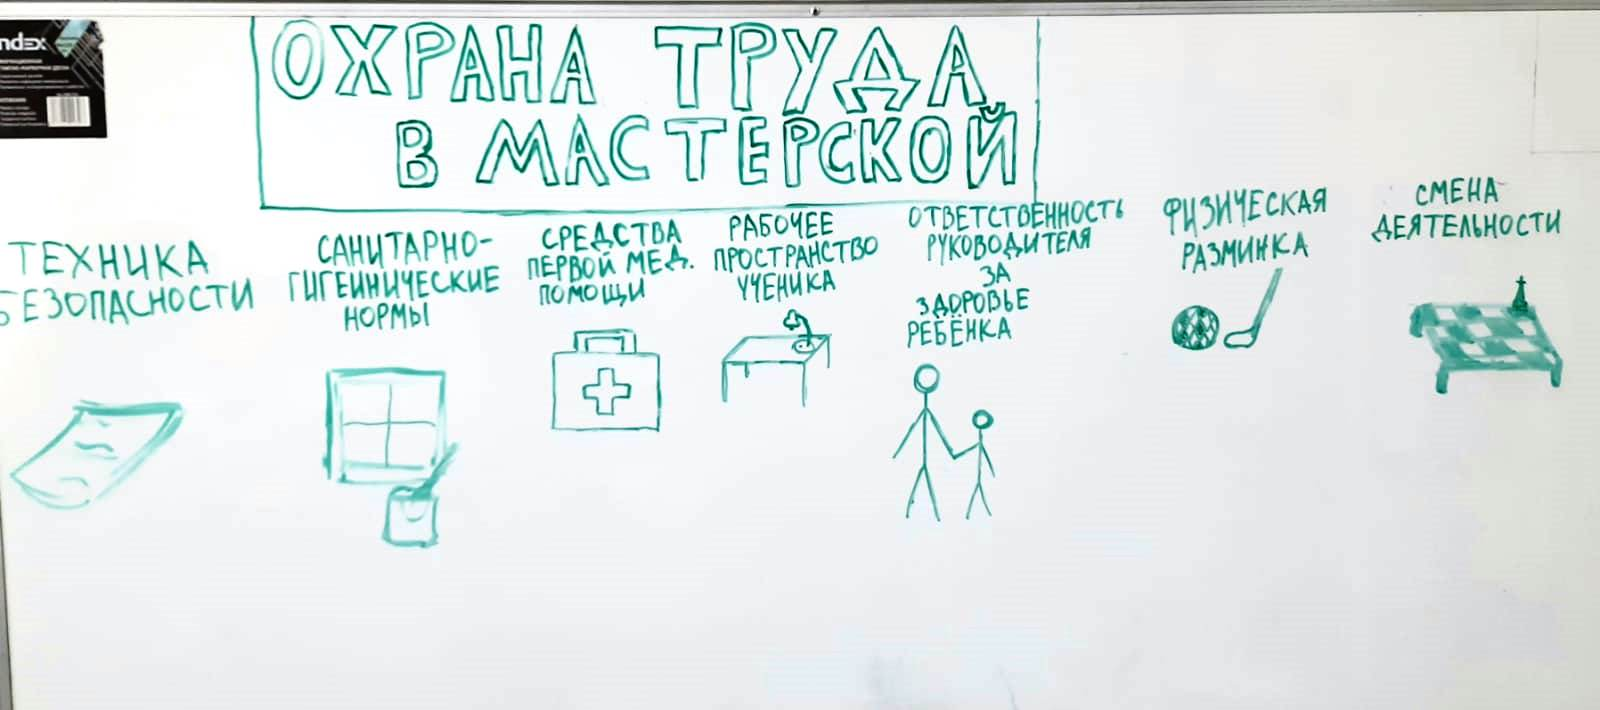 ndex
ОХРАНА ТРУДА
В МАСТЕРСКОЙ
ТЕХНИКА
БЕЗОПАСНОСТИ
САНИТАРНО-
ГИГЕИНИЧЕСКИЕ
НОРМЫ
СРЕДСТВА
ПЕРВОЙ МЕД.
ПОМОЩИ
РАБОЧЕЕ
ПРОСТРАНСТВО
УЧЕНИКА
ОТВЕТСТВЕННОСТЬ
РУКОВОДИТЕЛЯ
ЗА
ЗДОРОВЬЕ
РЕБЁНКА
ФИЗИЧЕСКАЯ
РАЗМИНКА
СМЕНА
ДЕЯТЕЛЬНОСТИ